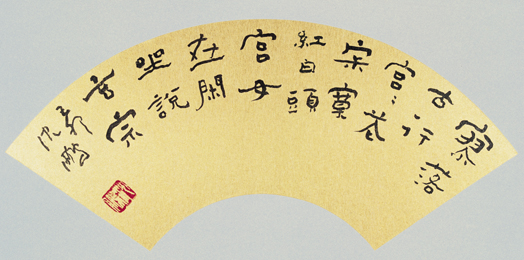 寥落
古行
宮〻花
寂寞
紅白頭
宮女
在閑
坐說
玄宗
沈鵬